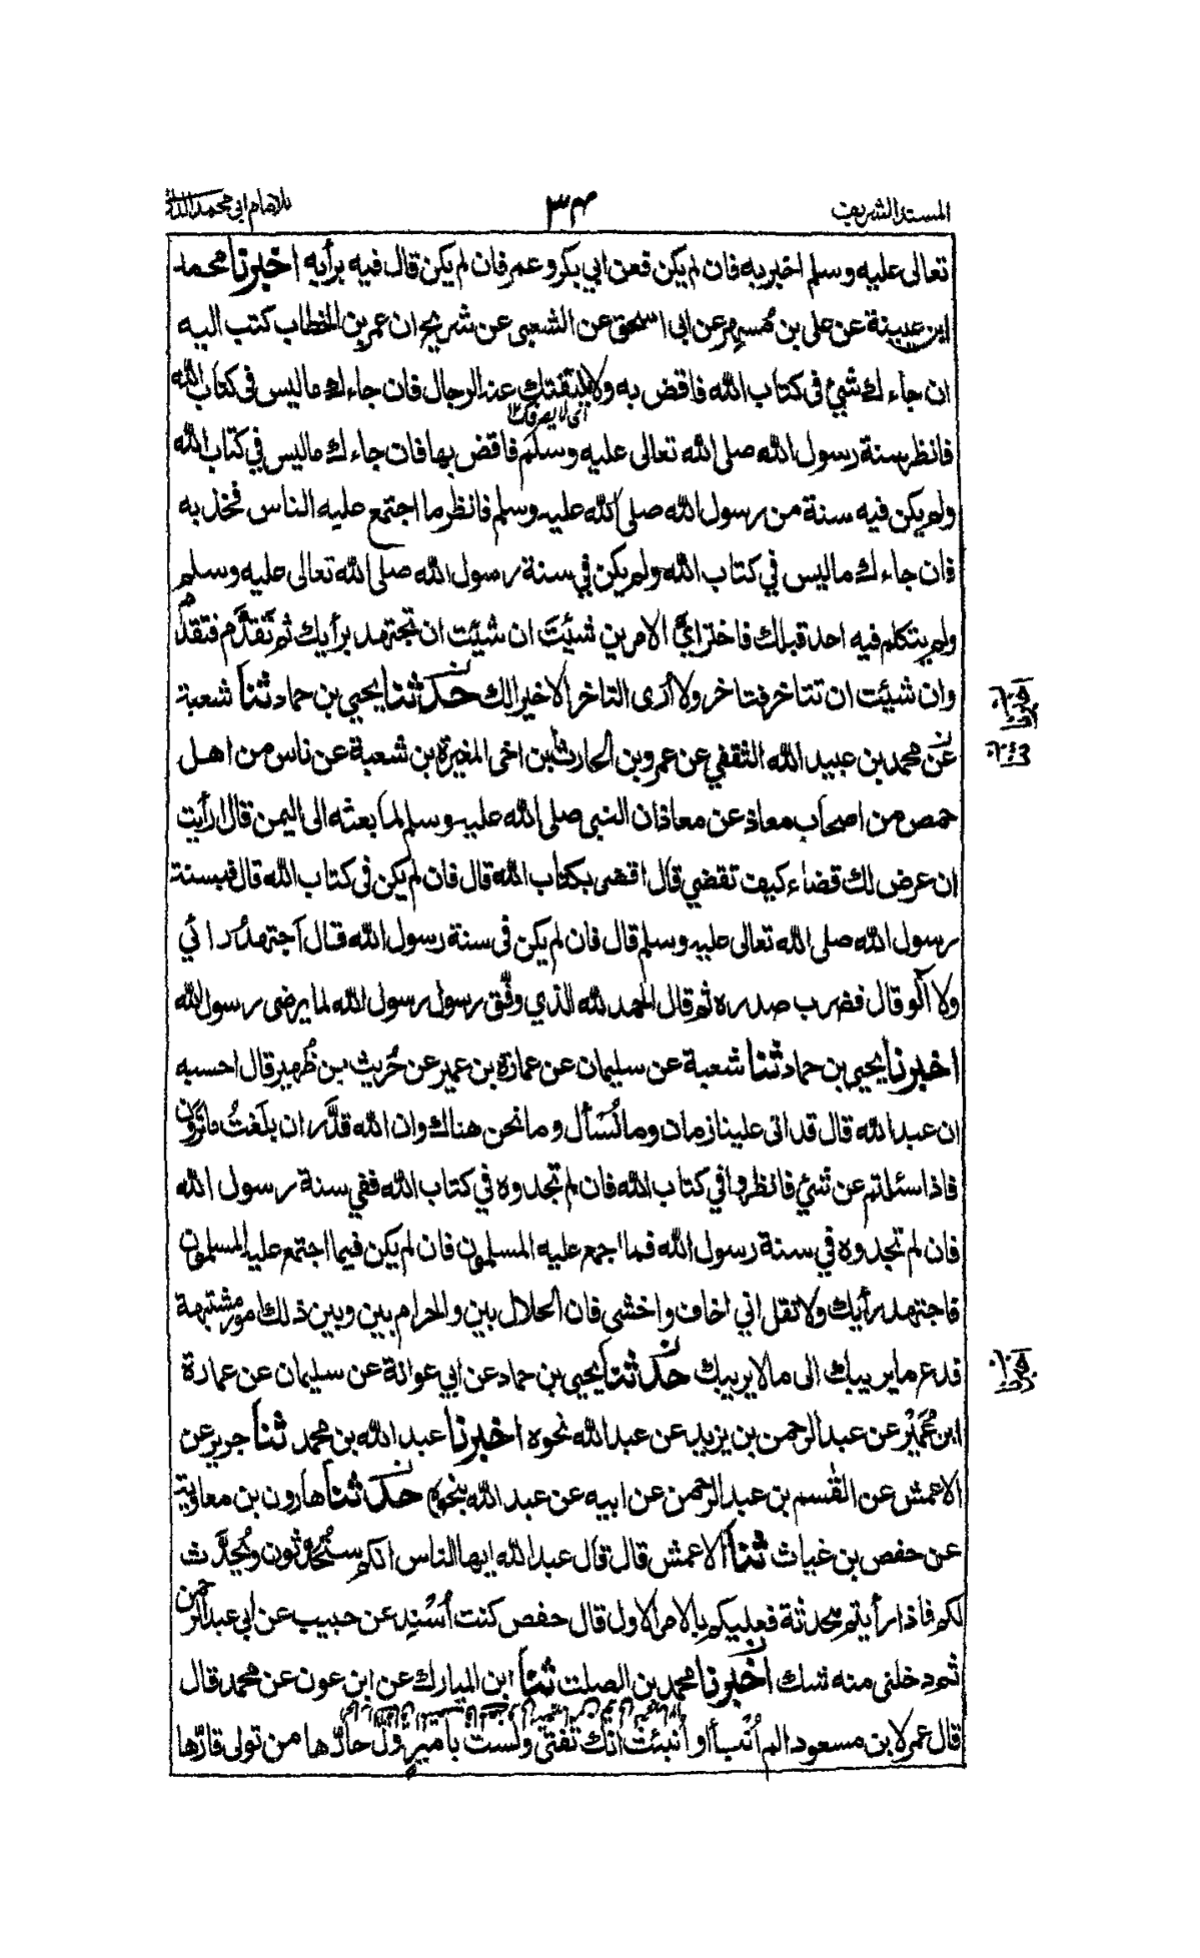 المسند الشريف ٣٤ للامام ابي محمد الدا
تعالى عليه وسلم اخبر به فان لم يكن فعن ابي بكر وعمر فان لم يكن قال فيه برأيه اخبرنا محمد
ابن عيينة عن على بن مُسهِر عن ابى اسحق عن الشعبى عن شريح ان عمر بن الخطاب كتب اليه
ان جاءك شئ فى كتاب الله فاقض به ولا يلتفتك عنه الرجال فان جاءك ماليس فى كتاب الله
اى لا يصرفك ١٢
فانظر سنة رسول الله صلى الله تعالى عليه وسلم فاقض بها فان جاءك ماليس في كتاب الله
ولم يكن فيه سنة من رسول الله صلى الله عليه وسلم فانظر ما اجتمع عليه الناس فخذ به
فان جاءك ماليس في كتاب الله ولم يكن في سنة رسول الله صلى الله تعالى عليه وسلم
ولم يتكلم فيه احد قبلك فاختر ايَّ الامرين شئتَ ان شئت ان تجتهد برأيك ثم تَقدَّم فتقدَّم
وان شئت ان تتاخر فتاخر ولا أرى التاخر الا خيرا لك حدثنا يحيى بن حماد ثنا شعبة
عن محمد بن عبيد الله الثقفي عن عمرو بن الحارث بن اخى المغيرة بن شعبة عن ناس من اهل
حمص من اصحاب معاذ عن معاذ ان النبى صلى الله عليه وسلم لما بعثه الى اليمن قال ارأيت
ان عرض لك قضاء كيف تقضي قال اقضى بكتاب الله قال فان لم يكن فى كتاب الله قال فبسنة
رسول الله صلى الله تعالى عليه وسلم قال فان لم يكن فى سنة رسول الله قال اجتهدُ رائي
ولا آلو قال فضرب صدره ثم قال الحمد لله الذي وفَّق رسول رسول الله لما يرضى رسول الله
اخبرنا يحيى بن حماد ثنا شعبة عن سليمان عن عمارة بن عمير عن حُريث بن ظُهير قال احسبه
ان عبد الله قال قد اتى علينا زمان وما نُسَأل وما نحن هناك وان الله قدَّر ان بلَغتُ ماترون
فاذا سئلتم عن شئ فانظروا في كتاب الله فان لم تجدوه في كتاب الله ففي سنة رسول الله
فان لم تجدوه في سنة رسول الله فما اجمع عليه المسلمون فان لم يكن فيما اجتمع عليه المسلمون
فاجتهد برأيك ولا تقل اني اخاف واخشى فان الحلال بين والحرام بين وبين ذلك امور مشتبهة
فدع مايريبك الى مالا يريبك حدثنا يحيى بن حماد عن ابي عوانة عن سليمان عن عمارة
ابن عُمَيْر عن عبد الرحمن بن يزيد عن عبد الله نحوه اخبرنا عبد الله بن محمد ثنا جرير عن
الاعمش عن القٰسم بن عبد الرحمن عن ابيه عن عبد الله بنحوه حدثنا هارون بن معاوية
عن حفص بن غياث ثنا الاعمش قال قال عبد الله ايها الناس انكم ستُحدثون ويُحدَّث
لكم فاذا رأيتم محدثة فعليكم بالامر الاول قال حفص كنت اُسْنِد عن حبيب عن ابى عبد الرحمن
ثم دخلنى منه شك اخبرنا محمد بن الصلت ثنا ابن المبارك عن ابن عون عن محمد قال
قال عمر لابن مسعود الم اُنبأ او اُنبئت انك تفتى ولست بامير ولّ حارّها من تولى قارّها